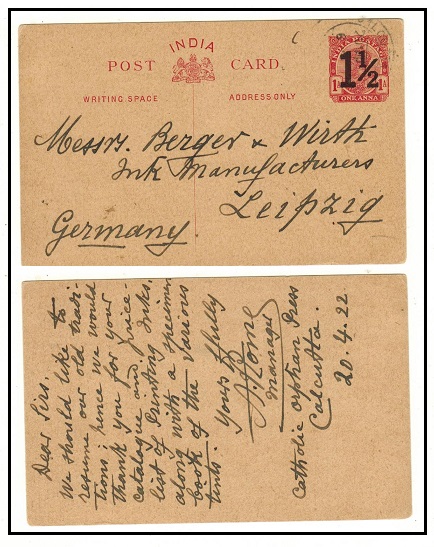 INDIA
POST CARD.
WRITING SPACE
ADDRESS ONLY
INDIA POSTAGE
1½
1A 1A
ONE ANNA
Messrs. Berger & Wirth
Ink Manufacturers
Leipzig
Germany
Dear Sirs.
We should like to
resume our old tradi-
tions; hence we would
thank you for your
catalogue and price-
list of Printing Inks.
along with a specimen
book of the various
tints.
Yours ffully
Manager
Catholic Orphan Press
Calcutta.
20.4.22